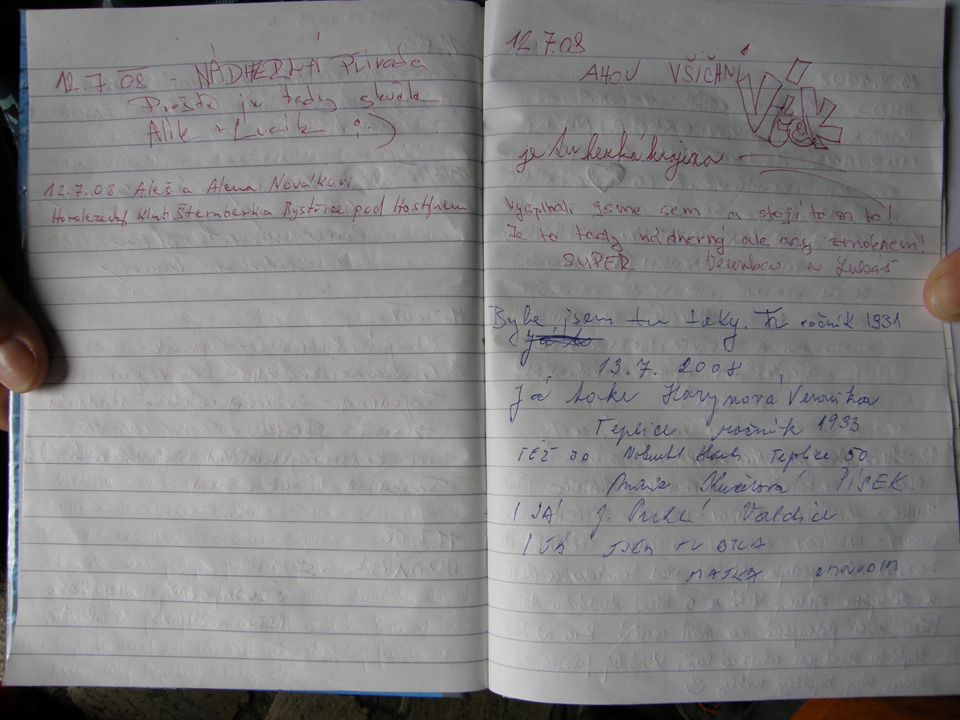 12.7.08 - NÁDHERNÁ Příroda
Prostě je tady skvěle
Alik + Lucik :)
12.7.08 Aleš a Alena Novákovi
Horolezecký klub Šternberk a Bystřice pod Hostýnem
12.7.08
AHOJ VŠICHNI
je tu hezká krajina
Vyšplhali jsme sem a stojí to za to!
Je to tady nádherný ale my zmoknem!
SUPER a Luboš
Byla jsem tu taky. ročník 1931
13.7.2008
Já taky Veronika
Teplice ročník 1933
TÉŽ JÁ Teplice 50
PÍSEK
I JÁ J. Valdice
I JÁ JSEM TU BYLA
MATKA